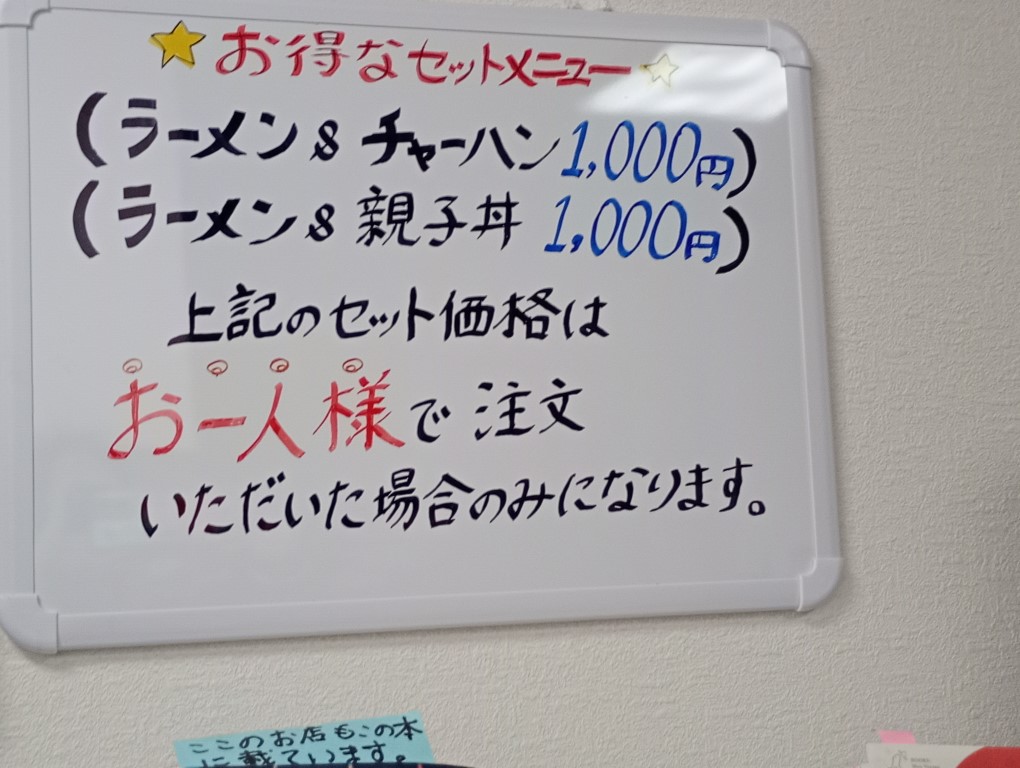 お得なセットメニュー
(ラーメン&チャーハン 1,000円)
(ラーメン&親子丼 1,000円)
上記のセット価格は
お一人様で注文
いただいた場合のみになります。
ここのお店もこの本
に載ています。